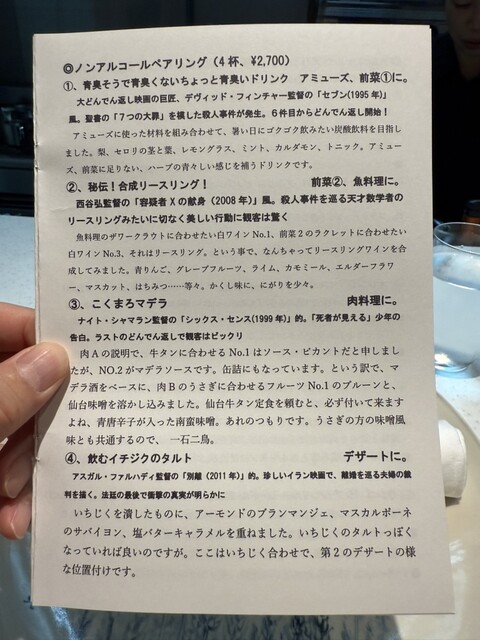 ◎ノンアルコールペアリング（4杯、¥2,700）
①、青臭そうで青臭くないちょっと青臭いドリンク　アミューズ、前菜①に。
大どんでん返し映画の巨匠、デヴィッド・フィンチャー監督の「セブン(1995年)」
風。聖書の「７つの大罪」を模した殺人事件が発生。６件目からどんでん返し開始！
アミューズに使った材料を組み合わせて、暑い日にゴクゴク飲みたい炭酸飲料を目指し
ました。梨、セロリの茎と葉、レモングラス、ミント、カルダモン、トニック。アミュー
ズ、前菜に足りない、ハーブの青々しい感じを補うドリンクです。
②、秘伝！合成リースリング！　前菜②、魚料理に。
西谷弘監督の「容疑者Xの献身（2008年）」風。殺人事件を巡る天才数学者の
リースリングみたいに切なく美しい行動に観客は驚く
魚料理のザワークラウトに合わせたい白ワインNo.1、前菜２のラクレットに合わせたい
白ワインNo.3、それはリースリング。という事で、なんちゃってリースリングワインを合
成してみました。青りんご、グレープフルーツ、ライム、カモミール、エルダーフラワ
ー、マスカット、はちみつ……等々。かくし味に、にがりを少々。
③、こくまろマデラ　肉料理に。
ナイト・シャマラン監督の「シックス・センス(1999年)」的。「死者が見える」少年の
告白。ラストのどんでん返しで観客はビックリ
肉Aの説明で、牛タンに合わせるNo.1はソース・ピカントだと申しまし
たが、NO.2がマデラソースです。缶詰にもなっています。という訳で、マ
デラ酒をベースに、肉Bのうさぎに合わせるフルーツNo.1のプルーンと、
仙台味噌を溶かし込みました。仙台牛タン定食を頼むと、必ず付いて来ます
よね、青唐辛子が入った南蛮味噌。あれのつもりです。うさぎの方の味噌風
味とも共通するので、一石二鳥。
④、飲むイチジクのタルト　デザートに。
アスガル・ファルハディ監督の「別離（2011年）」的。珍しいイラン映画で、離婚を巡る夫婦の裁
判を描く。法廷の最後で衝撃の真実が明らかに
いちじくを潰したものに、アーモンドのブランマンジェ、マスカルポーネ
のサバイヨン、塩バターキャラメルを重ねました。いちじくのタルトっぽく
なっていれば良いのですが。ここはいちじく合わせで、第２のデザートの様
な位置付けです。